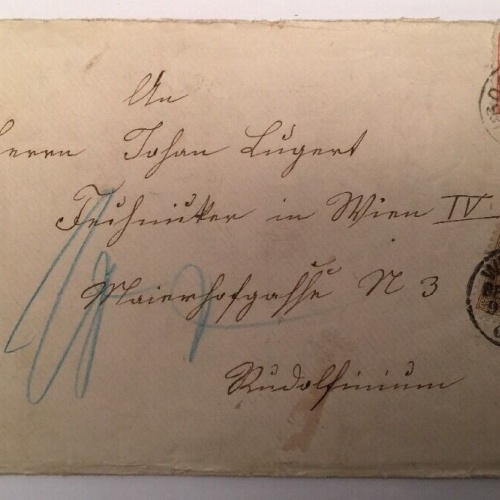 An
Herrn Johan Lugert
Techniker in Wien IV
Maierhofgasse N 3
Rudolfinium